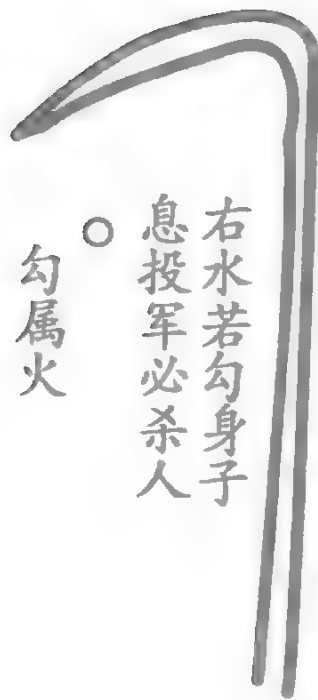 右水若勾身子
息投军必杀人
勾属火